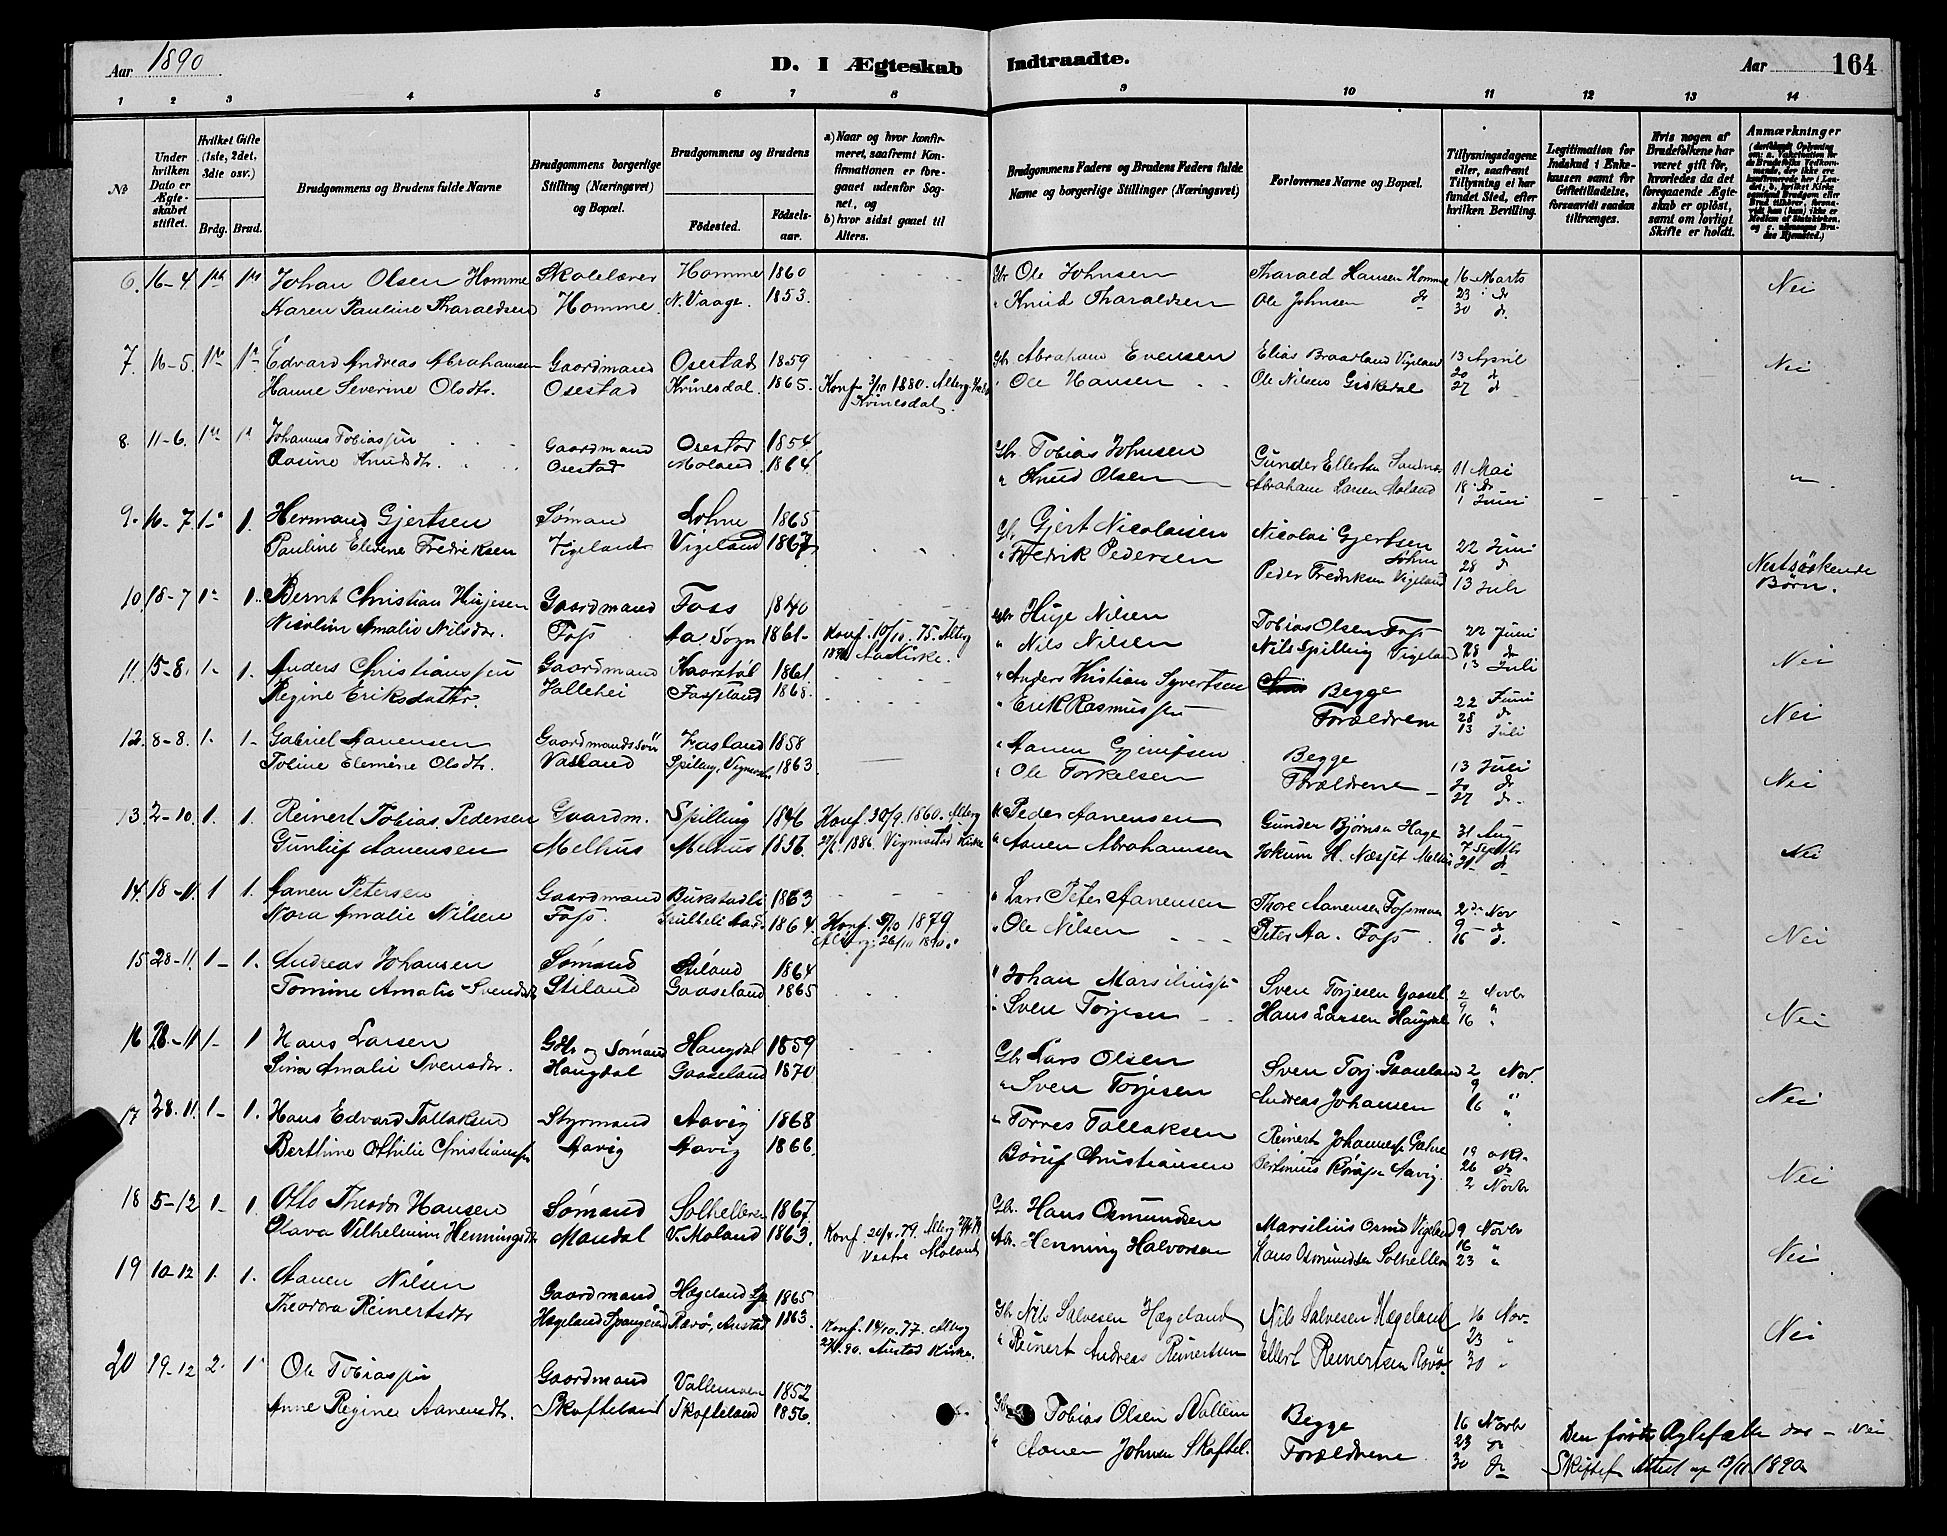 Aar 1890
D. I Ægteskab Indtraadte.
Aar 164
1 2 3 4 5 6 7 8 9 10 11 12 13 14
No
Under hvilken Dato er Ægteskabet stiftet.
Hvilket Gifte (1ste, 2det, 3die osv.)
Brdg. Brud.
Brudgommens og Brudens fulde Navne
Brudgommens borgerlige Stilling (Næringsvei) og Bopæl.
Brudgommens og Brudens
Fødested. Fødselsaar.
a) Naar og hvor konfirmeret, saafremt Konfirmationen er foregaaet udenfor Sognet, og
b) hvor sidst gaaet til Alters.
Brudgommens Faders og Brudens Faders fulde Navne og borgerlige Stillinger (Næringsvei)
Forlovernes Navne og Bopæl.
Tillysningsdagene eller, saafremt Tillysning ei har fundet Sted, efter hvilken Bevilling.
Legitimation for Indskud i Enkekassen samt for Giftetilladelse, forsaavidt saadan tiltrænges.
Hvis nogen af Brudefolkene har været gift før, hvorledes da det foregaaende Ægteskab er opløst, samt om lovligt Skifte er holdt.
Anmærkninger
6. 16-4 1ste 1ste Johan Olsen Homme Skolelærer Homme 1860 Gbr Ole Johnsen Tharald Hansen Homme 16 Marts
Karen Pauline Tharaldsen Homme. N. Vaage. 1853. " Knud Tharaldsen Ole Johnsen do 23 do Nei
30 d.
7. 16-5. 1ste 1ste Edvard Andreas Abrahamsen Gaardmand Osestad 1859 Gbr Abraham Evensen Elias Braarland Vigeland 13 April Nei
Hanne Severine Olsdtr. Osestad Kvinesdal 1865. Konf 3/10 1880. Alterg. " Ole Hansen Ole Nilsens Giskedal 20 d
Kvinesdal. 27 d
8. 11-6. 1ste 1ste Johannes Tobiassen Gaardmand Osestad 1854 Gbr. Tobias Johnsen Gunder Ellertsen 11 Mai
Rasine Knudsdtr. Osestad Moland 1864 " Knud Olsen Abraham Larsen Moland 18 do
1 Juni
9. 16-7. 1 1. Hermand Gjertsen Sømand Lohne 1865 Gbr. Gjert Nicolaisen Nicolai Gjertsen Lohne 22 Juni
Pauline Elevine Fredriksen Vigeland Vigeland 1867 " Fredrik Pedersen Peder Fredriksen Vigeland 28 d
13 Juli Nestsøskende Børn.
10 18-7 1 1. Bernt Christian Hujesen Gaardmand Foss 1840 Gbr Huje Nilsen Tobias Olsen Foss 22 Juni
Nicoline Amalie Nilsdtr. Foss Aa Sogn 1861- Konf. 10/10. 75. Alterg " Nils Nilsen Nils Spilling Vigeland 28 d
Aa Kirke. 13 Juli Nei
11. 15-8. 1- 1. Anders Christianssen Gaardmand 1861 " Anders Kristian Syvertsen Begge 22 Juni
Regine Eriksdatter. Vallehei Fasseland 1868. " Erik Rasmussen Forældrene 28 d
13 Juli Nei
12. 8-8. 1. 1- Gabriel Aanensen Gaardmandssøn 1858 " Aanen Begge 13 Juli
Toline Elemine Olsdtr. Vasland 1863. " Ole Torkelsen Forældrene 20 d Nei
27 d.
13. 2-10. 1. 1. Reinert Tobias Pedersen Gaardm. Spilling 1846 Konf. 30/9. 1860. Alterg " Peder Aanensen Gunder Bjørnsen Hage 31 Aug
Gunlief Aanensen Melhus Melhus 1836. 1886. Vigmostad Kirke " Aanen Abrahamsen Jokum H. Næsset 7 Septbr
21 d Nei
14. 18-11. 1 1. Aanen Petersen Gaardmand Birkstadli 1863 " Lars Peter Aanensen Thore Aanensen Fossmoen 2 Nov
Nora Amalie Nilsen Foss. 1864. Konf. 5/10 1879. " Ole Nilsen Peter Aa. Foss 9 d
Alterg. 26/11 1890. 16 d. Nei
15 28-11. 1- 1. Andreas Johansen Sømand Stiland 1864 " Johan Marsiliussen Sven Torjesen Gaasel. 2 Novbr
Tomine Amalie Svendsdtr Stiland Gaaseland 1865 " Sven Torjesen Hans Larsen Haugdal 9 "
16 " Nei
16 28-11 1- 1 Hans Larsen Gdbr og Sømand Haugdal 1859 Gbr Lars Olsen Sven Torj. Gaaseland 2 Nov.
Sina Amalie Svensdtr. Haugdal Gaaseland 1870 " Sven Torjesen Andreas Johansen 9 "
16 " Nei
17 28.11. 1- 1. Hans Edvard Tallaksen Styrmand Aavig 1868 " Torres Tallaksen Reinert Johannes 19 okt.
Berthine Othilie Christianssen Aavig Aavig 1866. Børuf Christiansen Aavig. 26 do
2 Novbr Nei
18 5-12 1- 1. Otto Theodor Hansen Sømand Solhelleren 1867 Gbr. Hans Osmundsen Marsilius Vigeland 9 Novbr
Olava Vilhelmine Henningsdtr Mandal V. Moland 1863. Konf. 20/4. 79. Alterg Henning Halvorsen Hans Osmundsen Solhelleren 16 "
Vestre Moland 23 " Nei
19 10-12 1. 1. Aanen Nilsen Gaardmand Hægeland 1865 Gbr Nils Salvesen Hægeland Nils Salvesen Hægeland 16 Nov-
Theodora Reinertsdtr Hægeland Spangereid Rævø, Austad 1863. Konf. 14/10. 77. Alterg " Reinert Andreas Reinertsen Ellert Reinertsen 23 "
90. Austad Kirke. 30 " Nei
20 19-12 2. 1 Ole Tobiassen Gaardmand Vallemoen 1852 Gbr Tobias Olsen Begge 16 Novbr
Anne Regine Aanensdtr. Skofteland Skofteland 1856. " Aanen Johnsen Skoftel. Forældrene 23 do Den første Ægtefælle død - Nei
30 do Skifteattest af 13/11 1890